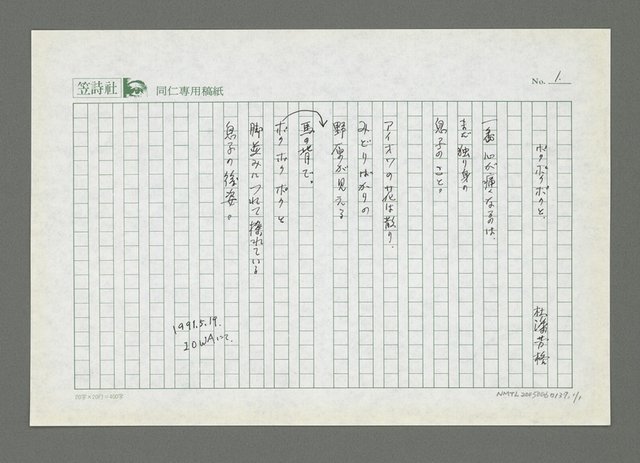 笠詩社
同仁専用稿紙
No. 1.
ポクポクポクと、
杜潘芳格
一番 心が痛くなるのは、
まだ 独り身の
息子のこと。
アイオワの花は散り、
みどりばかりの
野原が見える
馬の背で。
ポク ポク ポク と
脚並みにつれて 揺れている
息子の後姿。
1991.5.19.
IOWAにて.
20字×20行=400字
NMTL20050060139. 1/1